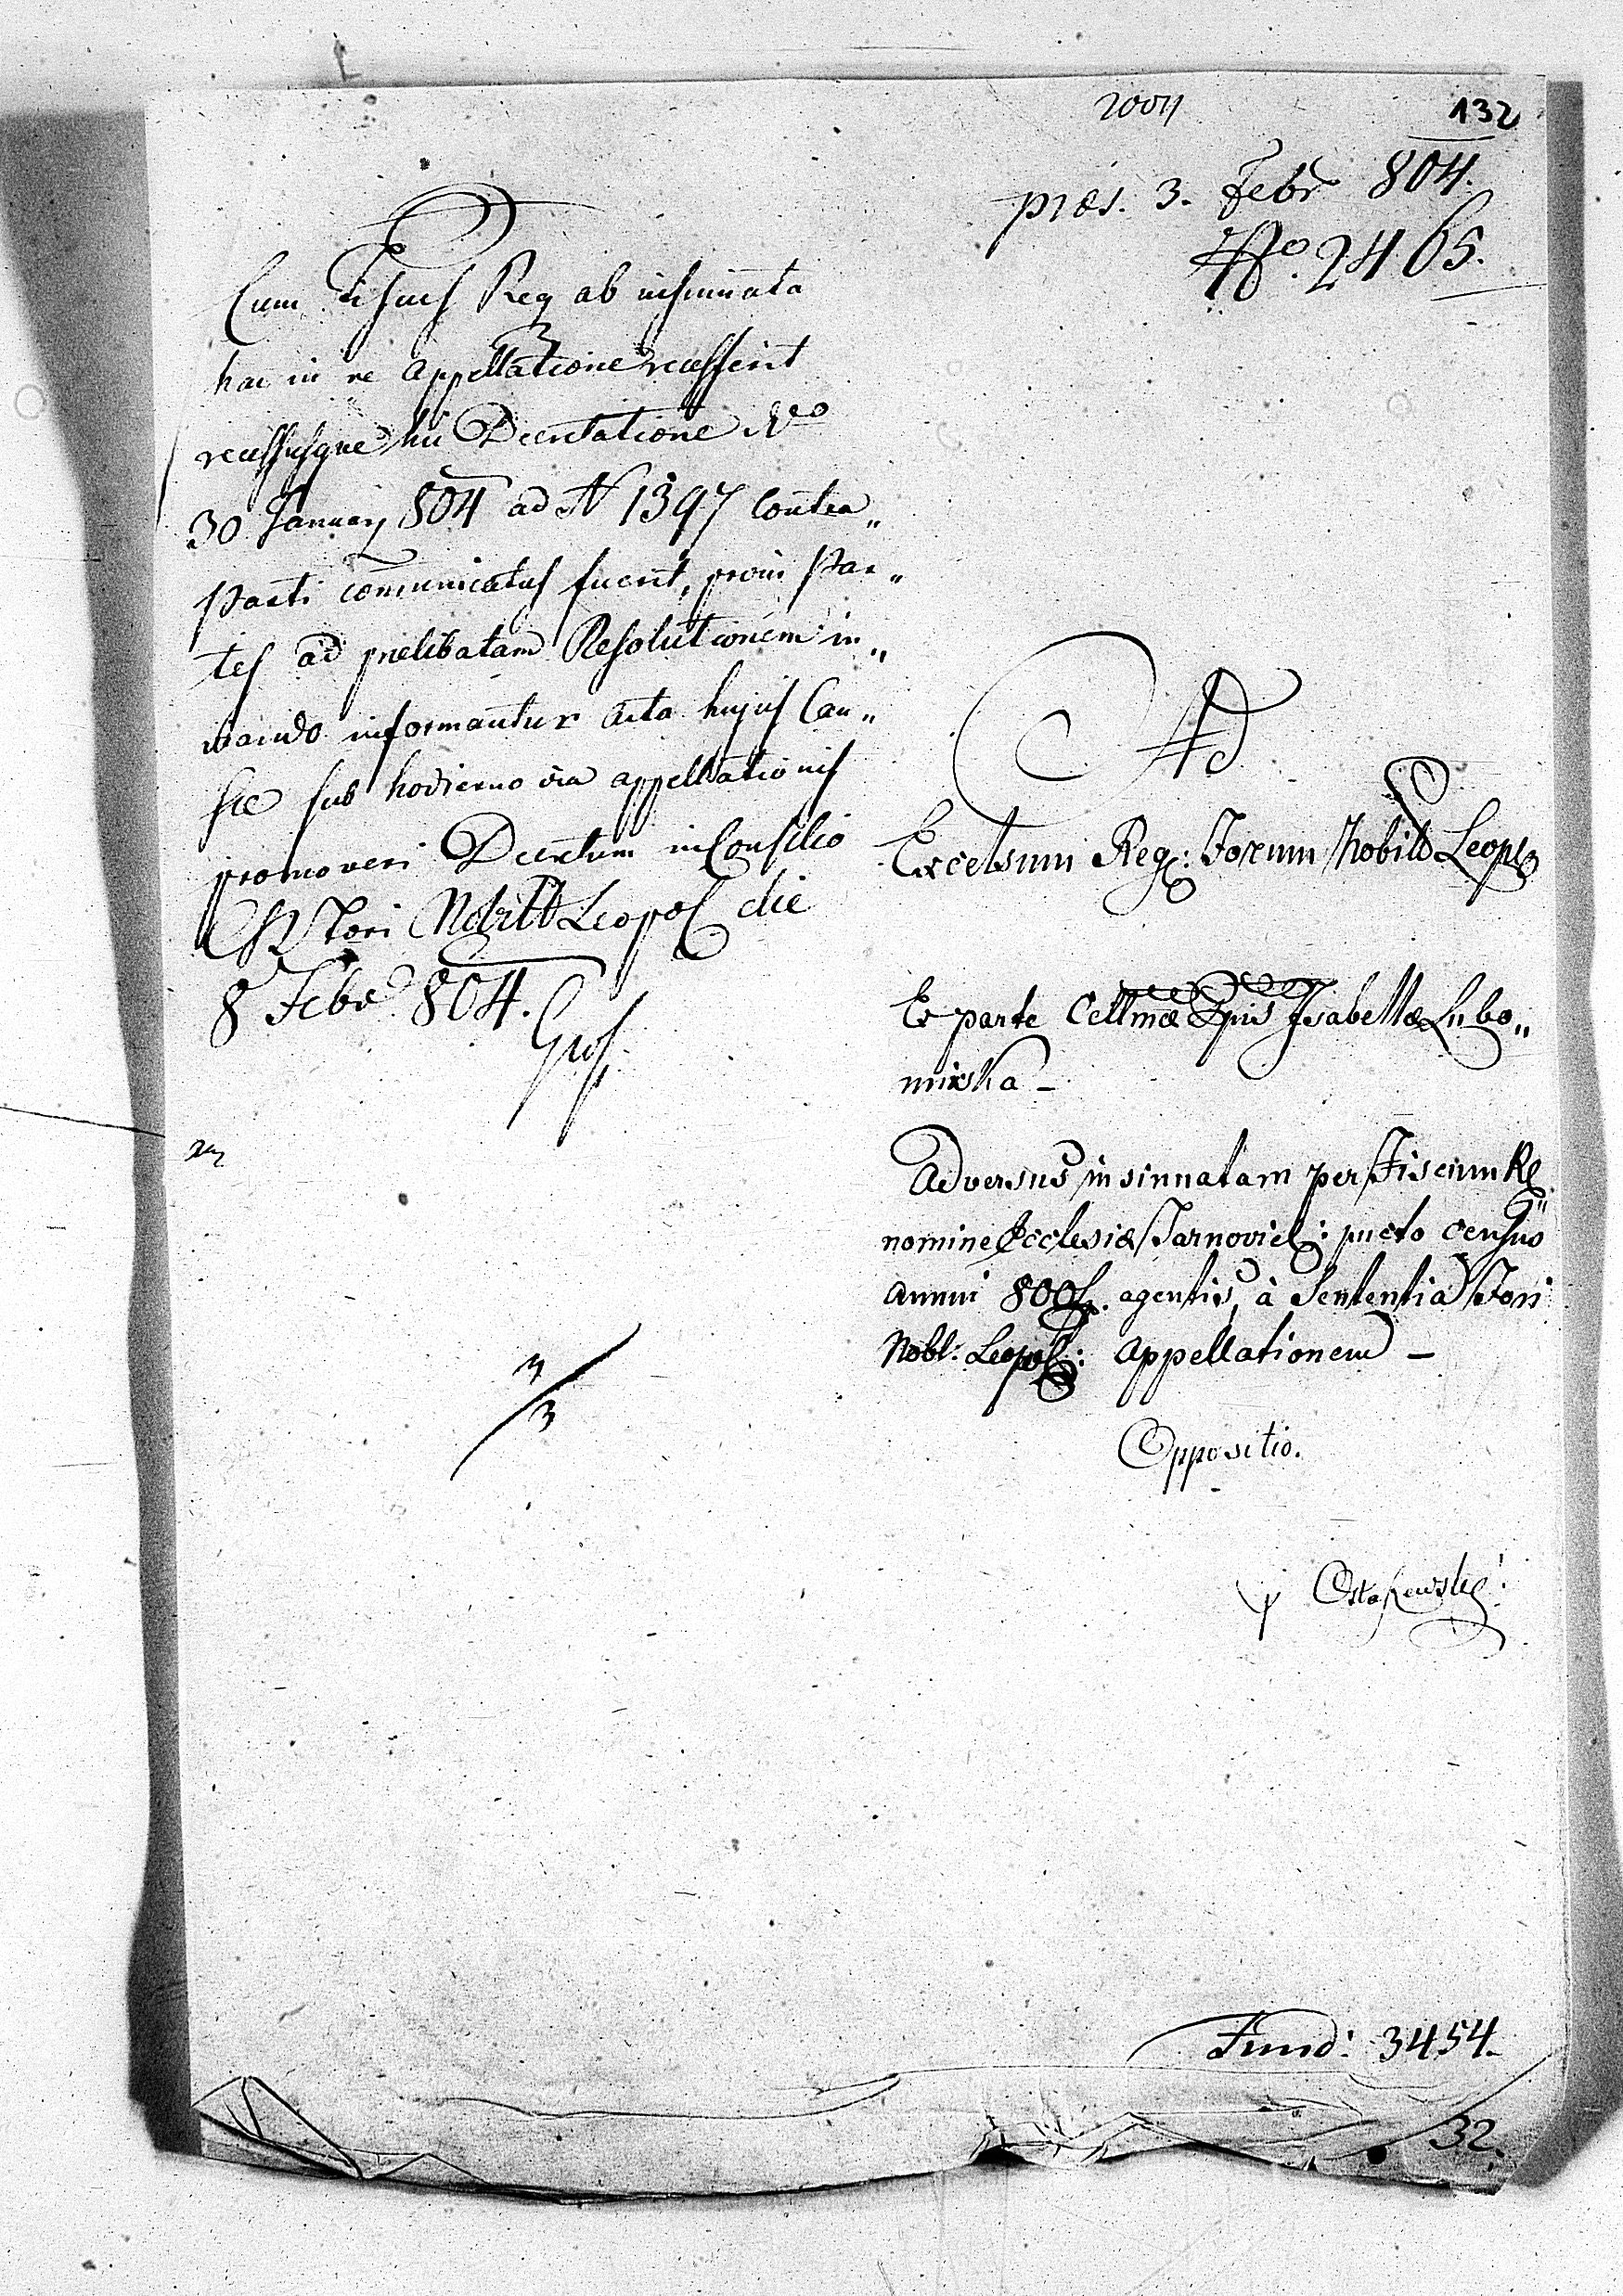 132
præs. 3. Febr 804.
No. 2465.
Cum Fiscus Reg ab insinuata
hac in re appellatione recesserit
recessusque hic Decretatione
30 January 804 ad N 1397 Contra„
parti communicatus fuerit, proin Par„
tes ad prelibatam Resolutionem in„
viando informantur acta hujus Cau„
sæ sub hodierno via appellationis
promoveri Decretum in Consilio
CR Fori Nobill Leopol die
8 Febr 804.
Ad
Excelsum Reg: Forum Nobild Leopl
Ex parte Cellmæ Ppis Isabellæ Lubo„
mirska –
Adversus insinuatam per Fiscum Rg„
nomine Ecclesiæ Tarnoviel: pucto census
annui 800f. agentis, à Sententia Fori
Nobl: Leopol: appellationem –
Oppositio.
3
3
Fund: 3454.
32.